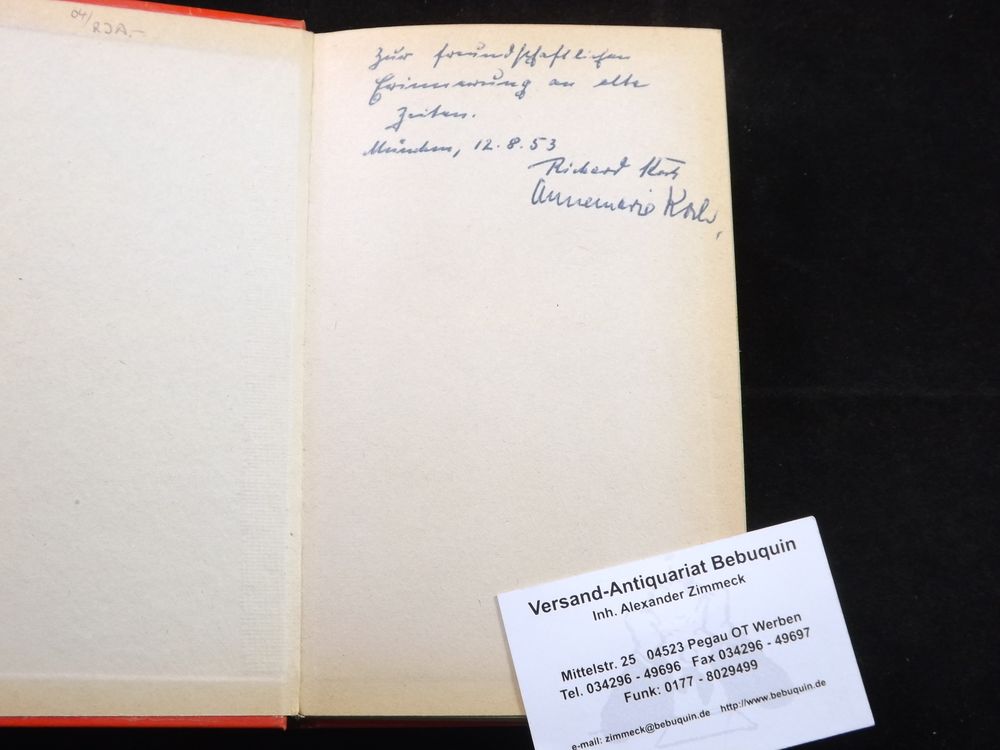 04/
RJA.-
Zur freundschaftlichen
Erinnerung an alte
Zeiten.
München, 12.8.53
Richard
Annemarie
Versand-Antiquariat Bebuquin
Inh. Alexander Zimmeck
Mittelstr. 25 04523 Pegau OT Werben
Tel. 034296 - 49696 Fax 034296 - 49697
Funk: 0177 - 8029499
e-mail: zimmeck@bebuquin.de http://www.bebuquin.de